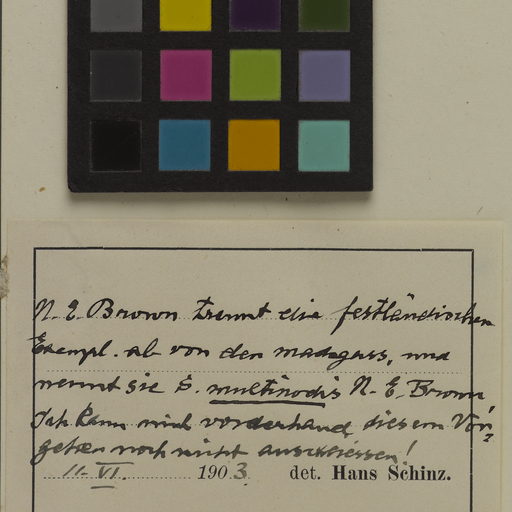 N. E. Brown trennt die festländischen
Exempl. ab von den madagass, und
nennt sie S. multinodis N. E. Brown
Ich kann mich vorderhand diesem Vor-
gehen noch nicht anschliessen!
11. VI. 1903. det. Hans Schinz.